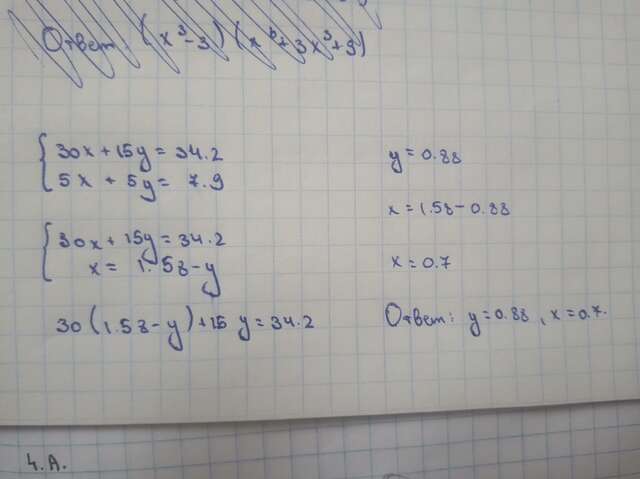 Ответ: (x³-3)(x⁶+3x³+9)
30x+15y=34.2
5x+5y=7.9
30x+15y=34.2
x=1.58-y
30(1.58-y)+15y=34.2
y=0.88
x=1.58-0.88
x=0.7
Ответ: y=0.88, x=0.7.
4.А.